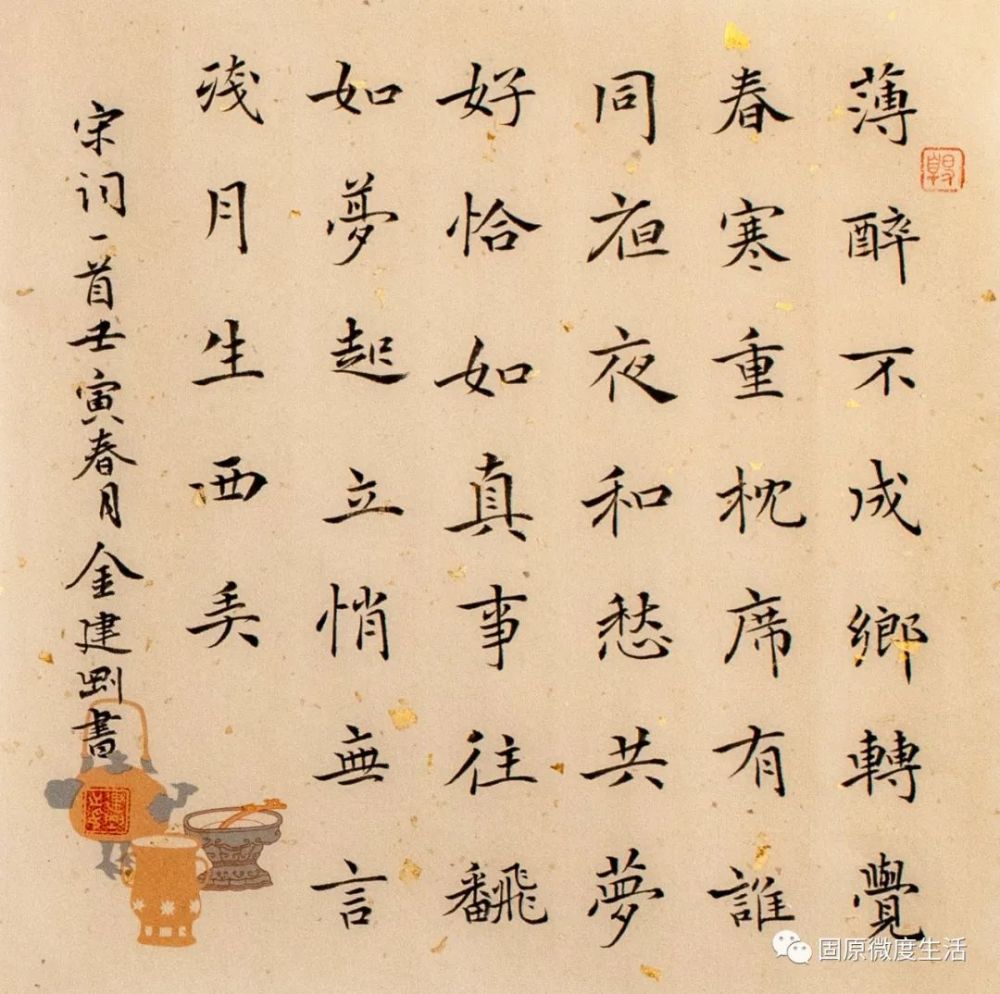 薄醉不成鄉轉覺
春寒重枕席有誰
同亱夜和愁共夢
好恰如真事往飜
如夢起立悄無言
残月生西弄
宋詞一首壬寅春月金建剛書
固原微度生活